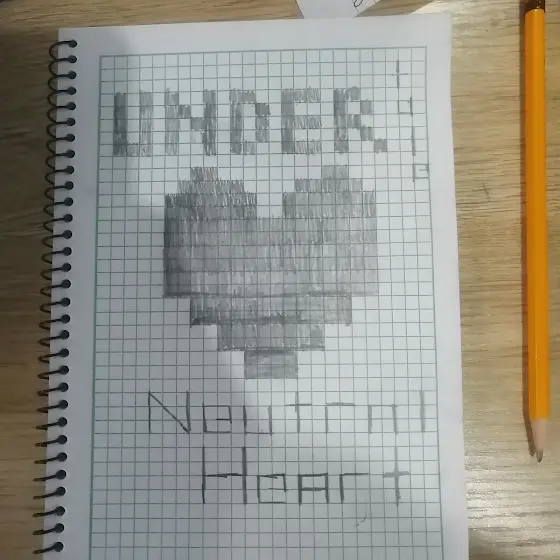 UNDER
tale
Neutral
Heart